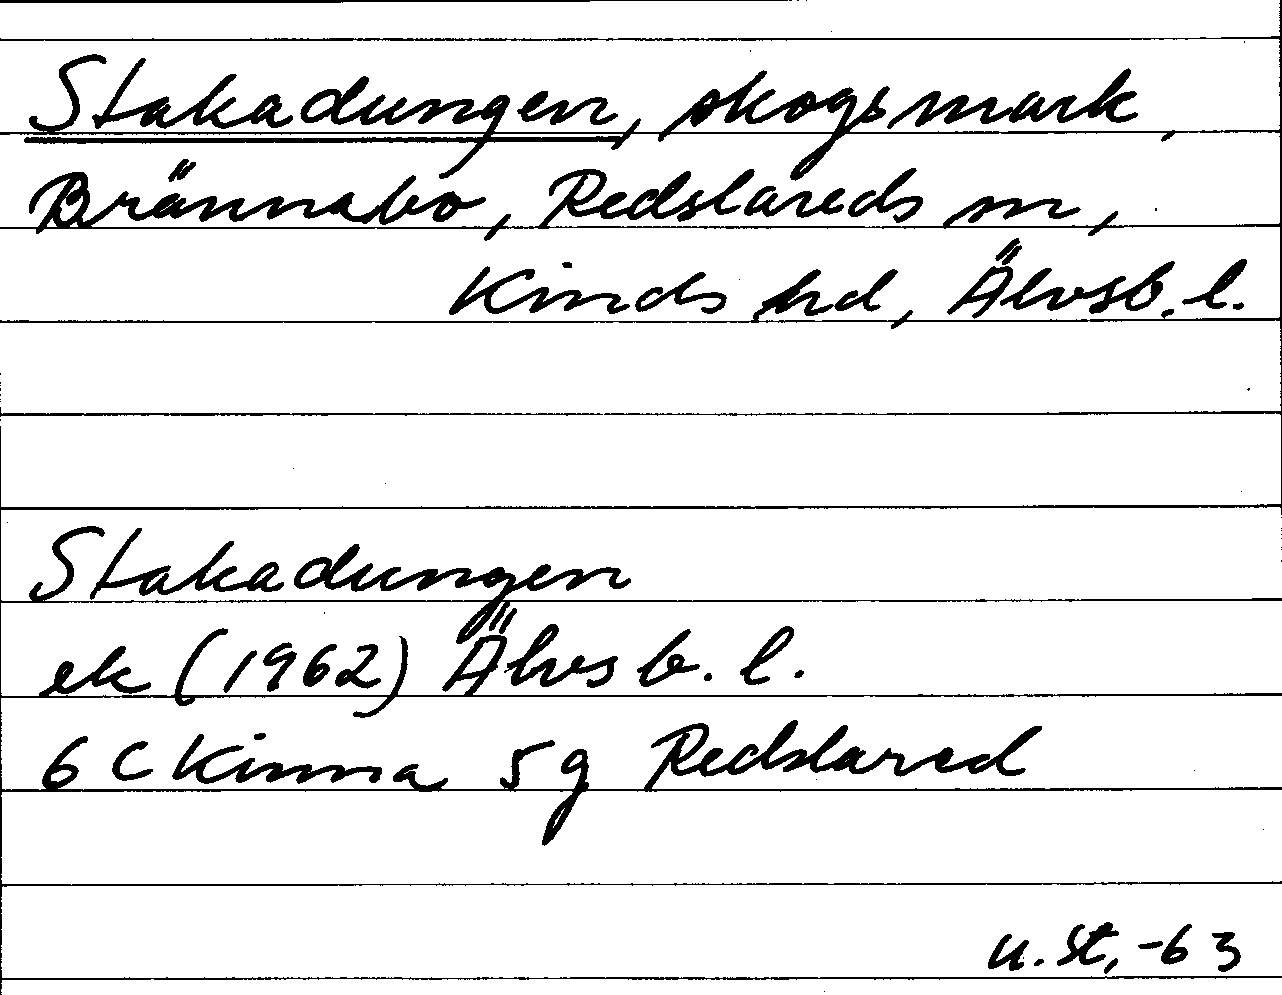 Stakadungen, skogsmark,
Brännabo, Redslareds sn,
Kinds hd, Älvsb. l.
Stakadungen
ek (1962) Älvsb. l.
6 C Kinna 5 g Redslared
U. St, -63